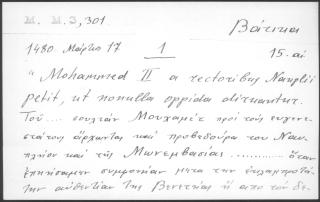 M. M. 3, 301
Βάτικα
1480 Μάρτιο 17 1 15. αἰ
"Mohammed II a rectoribus Nauplii
petit, ut nonulla oppida
Τοῦ .... σουλτάν Μουχαμὲτ πρὸς τοὺς εὐγενε-
στάτους ἄρχοντας καὶ προβεδούρα του Ναυ-
πλίου καὶ τῆς Μωνεμβασίας .......... ὅταν
ἐποιήσαμεν συμφωνίαν μετα την
την αὐθεντίαν της Βενετίας ἡ απο τοῦ δε-